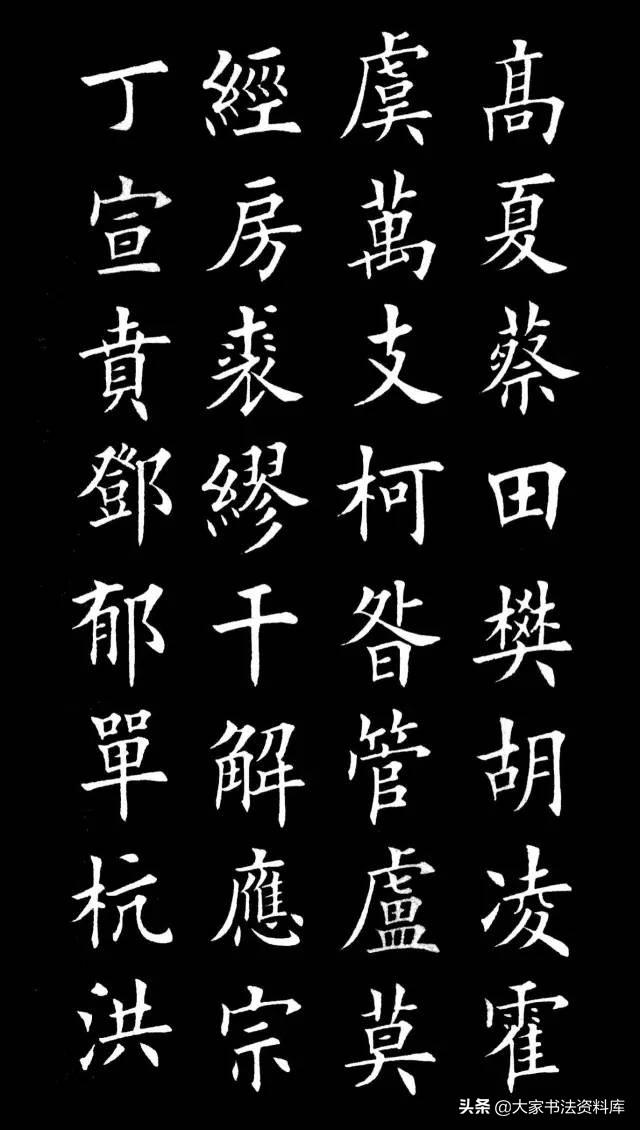 髙夏蔡田樊胡凌霍
虞萬支柯昝管盧莫
經房裘繆干解應宗
丁宣賁鄧郁單杭洪
头条 @大家书法资料库